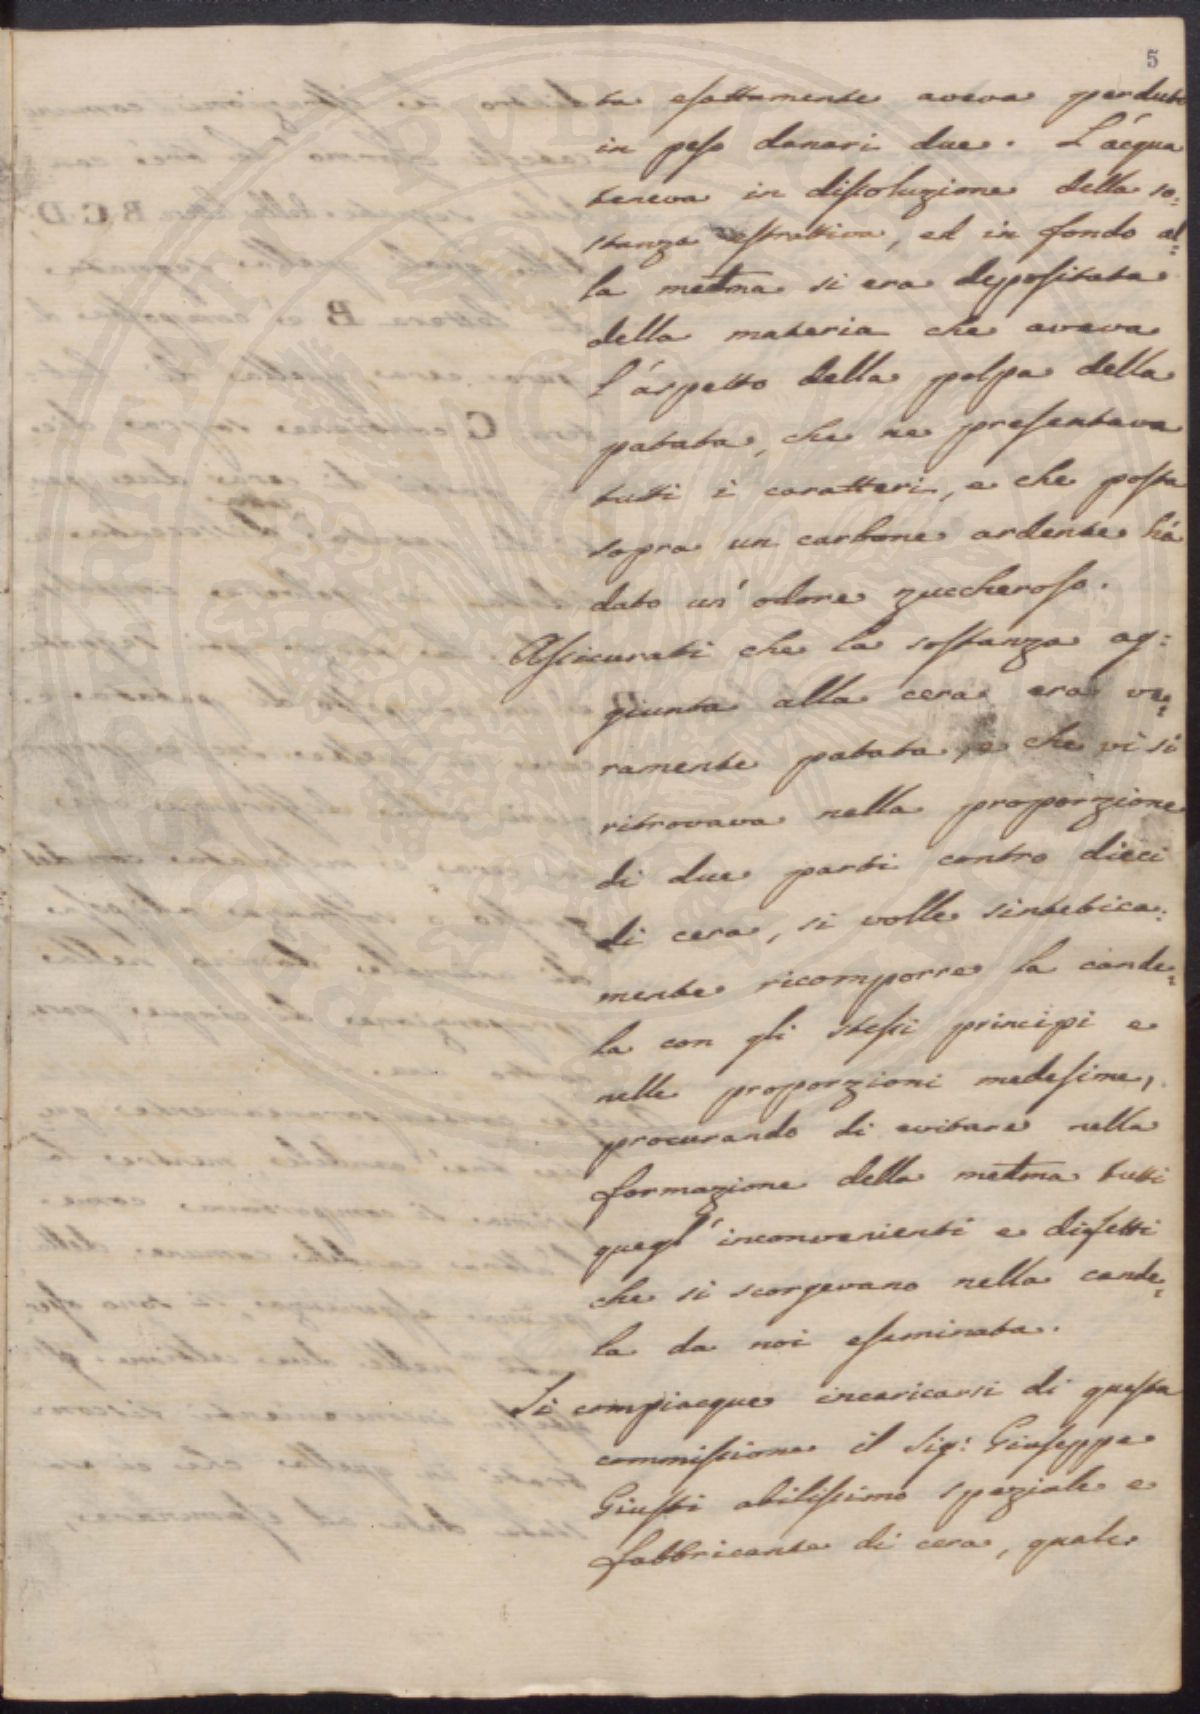 5
ta esattamente aveva perduto
in peso danari due. L'acqua
teneva in dissoluzione della so=
stanza estrattiva, ed in fondo al=
la medma si era depositata
della materia che aveva
l'aspetto della polpa della
patata, che ne presentava
tutti i caratteri, e che posta
sopra un carbone ardente há
dato un' odore zuccheroso.
Assicurati che la sostanza ag=
giunta alla cera era ve=
ramente patata, e che vi si
ritrovava nella proporzione
di due parti contro dieci
di cera, si volle sintetica=
mente ricomporre la cande=
la con gli stessi principi e
nelle proporzioni medesime,
procurando di evitare nella
formazione della medma tutti
quegl' inconvenienti e difetti
che si scorgevano nella cande=
la da noi esaminata.
Si compiacque incaricarsi di questa
commissione il Sig: Giuseppe
Giusti abilissimo speziale e
fabbricante di cera, quale